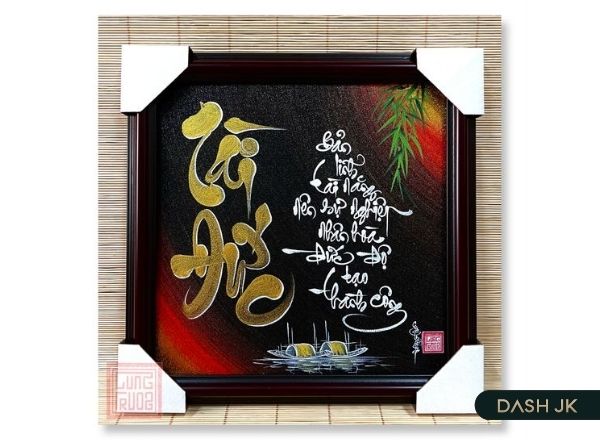 Tài
Đức
Bản
lĩnh
tài năng
nên sự nghiệp
Nhân hòa
đức độ
tạo
thành công
LUNG
RUOA
DASH JK